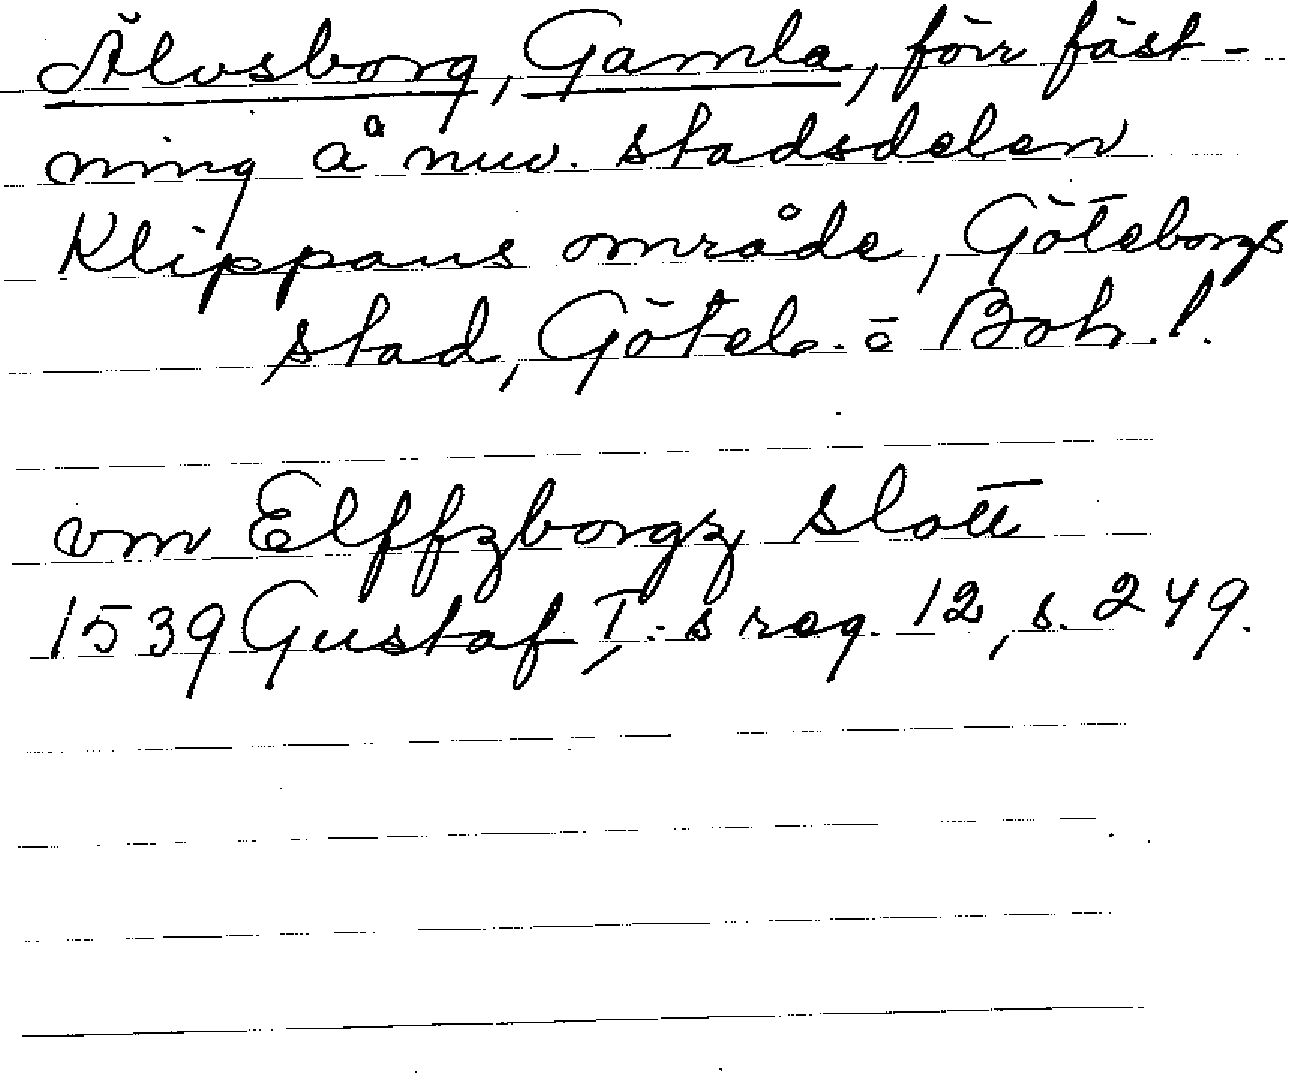 Älvsborg, Gamla, förr fäst-
ning å nuv. stadsdelen
Klippans område, Göteborgs
stad, Göteb. o Boh. l.
vm Elffzborgz slott
1539 Gustaf I:s reg. 12, s. 249.